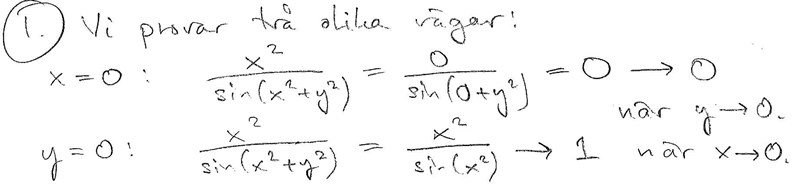 1. Vi provar två olika vägar:
x = 0 : x²/sin(x²+y²) = 0/sin(0+y²) = 0 → 0
när y→0.
y = 0 : x²/sin(x²+y²) = x²/sin(x²) → 1 när x→0.